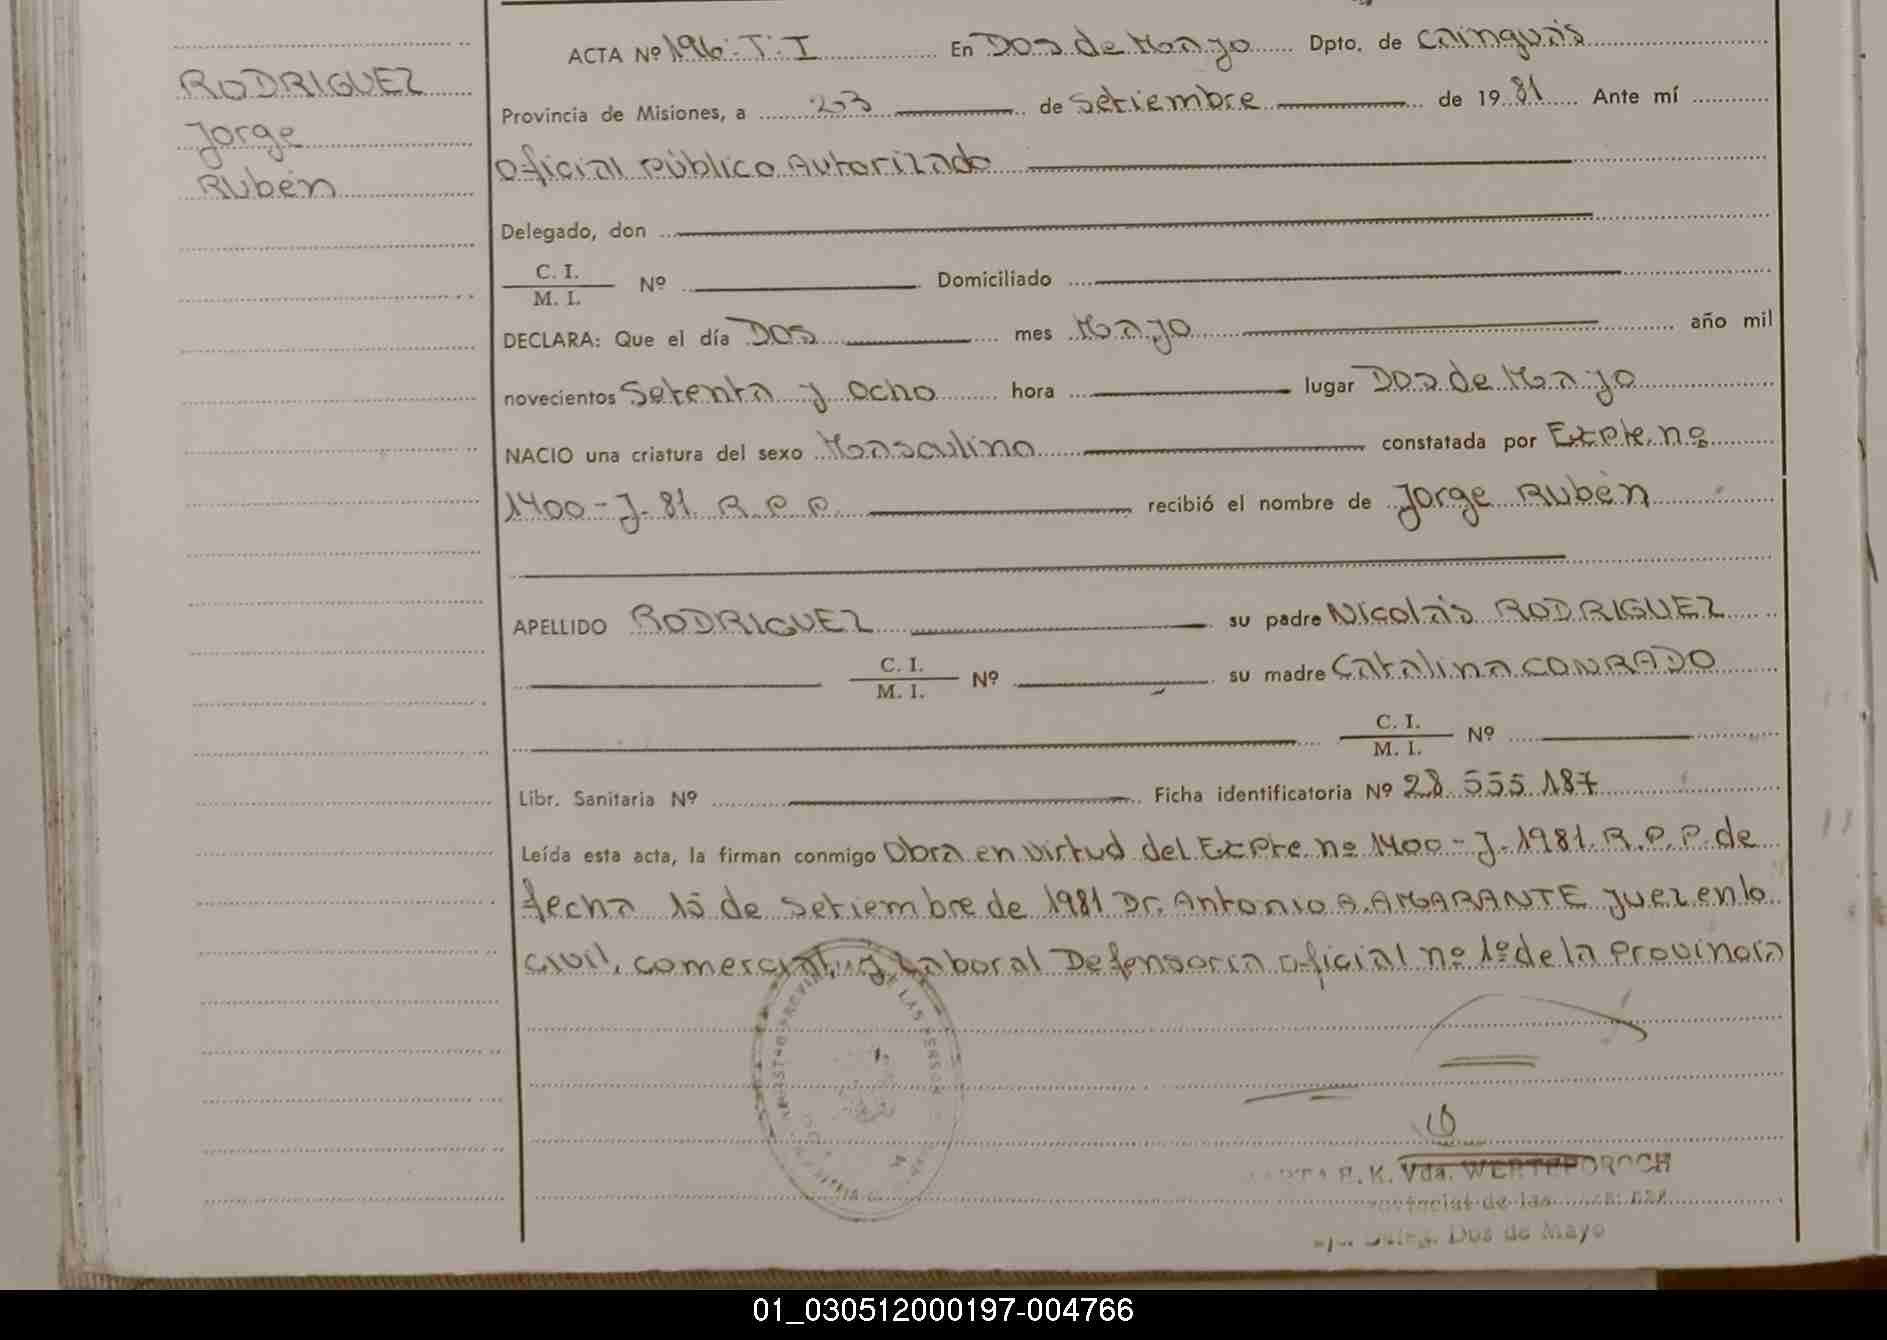 RODRIGUEZ
Jorge
Rubén
ACTA Nº 196-T-I En Dos de Mayo Dpto. de Cainguás
Provincia de Misiones, a 23 de Setiembre de 1981 Ante mí
Oficial Público Autorizado
Delegado, don
C. I.
M. I. Nº Domiciliado
DECLARA: Que el día Dos mes Mayo año mil
novecientos Setenta y Ocho hora lugar Dos de Mayo
NACIO una criatura del sexo Masculino constatada por Expte. nº
1400-J-81 R.P.P. recibió el nombre de Jorge Rubén
APELLIDO RODRIGUEZ su padre Nicolás RODRIGUEZ
C. I.
M. I. Nº su madre Catalina CONRADO
C. I.
M. I. Nº
Libr. Sanitaria Nº Ficha identificatoria Nº 28.555.187
Leída esta acta, la firman conmigo Obra en virtud del Expte. nº 1400-J-1981. R.P.P. de
fecha de Setiembre de 1981 Dr. Antonio A. AMARANTE Juez en lo
Civil, Comercial, y Laboral Defensoría Oficial nº 1º de la Provincia
LAS PERSON
E. K. Vda.
de las
Dos de Mayo
01_030512000197-004766